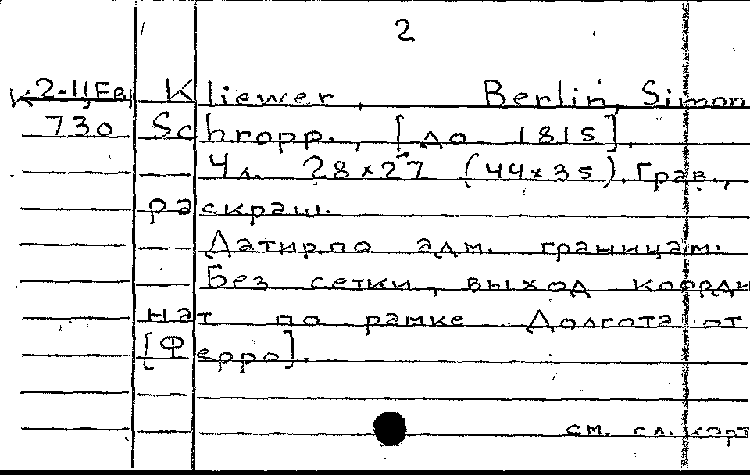 2
К 2-II,Ев Kliewer, Berlin, Simon
730 Schropp., [до 1815].
4 л. 28×27 (44×35). Грав.,
раскраш.
Датир. по адм. границам.
Без сетки, выход коорди
нат по рамке Долгота от
[Ферро].
см. сл. карт